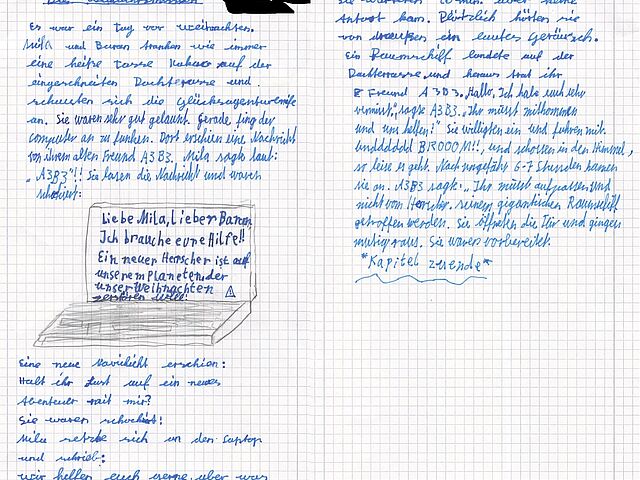 Es war ein Tag vor Weihnachten.
Mila und Baran tranken wie immer
eine heiße Tasse Kakao auf der
eingeschneiten Dachterasse und
schauten sich die
an. Sie waren sehr gut gelaunt. Gerade fing der
computer an zu funken. Dort erschien eine Nachricht
von ihrem alten Freund A3B3. Mila sagte laut:
„A3B3"!! Sie lasen die Nachricht und waren
schockiert:
Liebe Mila, Lieber Baran,
Ich brauche eure Hilfe!!
Ein neuer Herscher ist auf
unserem Planeten, der
unser Weihnachten
zerstören will!
Eine neue Nachricht erschien:
Habt ihr Lust auf ein neues
Abenteuer mit mir?
Sie waren schockiert!
Mila setzte sich an den Laptop
und schrieb:
wir helfen euch gerne, aber was
Antwort kam. Plötzlich hörten sie
von draußen ein lautes Geräusch.
Ein Raumschiff landete auf der
Dachterasse und heraus trat ihr
Freund A3B3. „Hallo, Ich habe euch sehr
vermisst", sagte A3B3. „Ihr müsst mitkommen
und uns helfen!" Sie willigten ein und fuhren mit.
Undddddd BROOOM!!, und schossen in den Himmel,
so leise es geht. Nach ungefähr 6-7 Stunden kamen
sie an. A3B3 sagte: „Ihr müsst aufpassen und
nicht vom Herscher, seinem gigantischen Raumschiff
getroffen werden. Sie öffneten die Tür und gingen
mutig raus. Sie waren vorbereitet.
*Kapitel zuende*